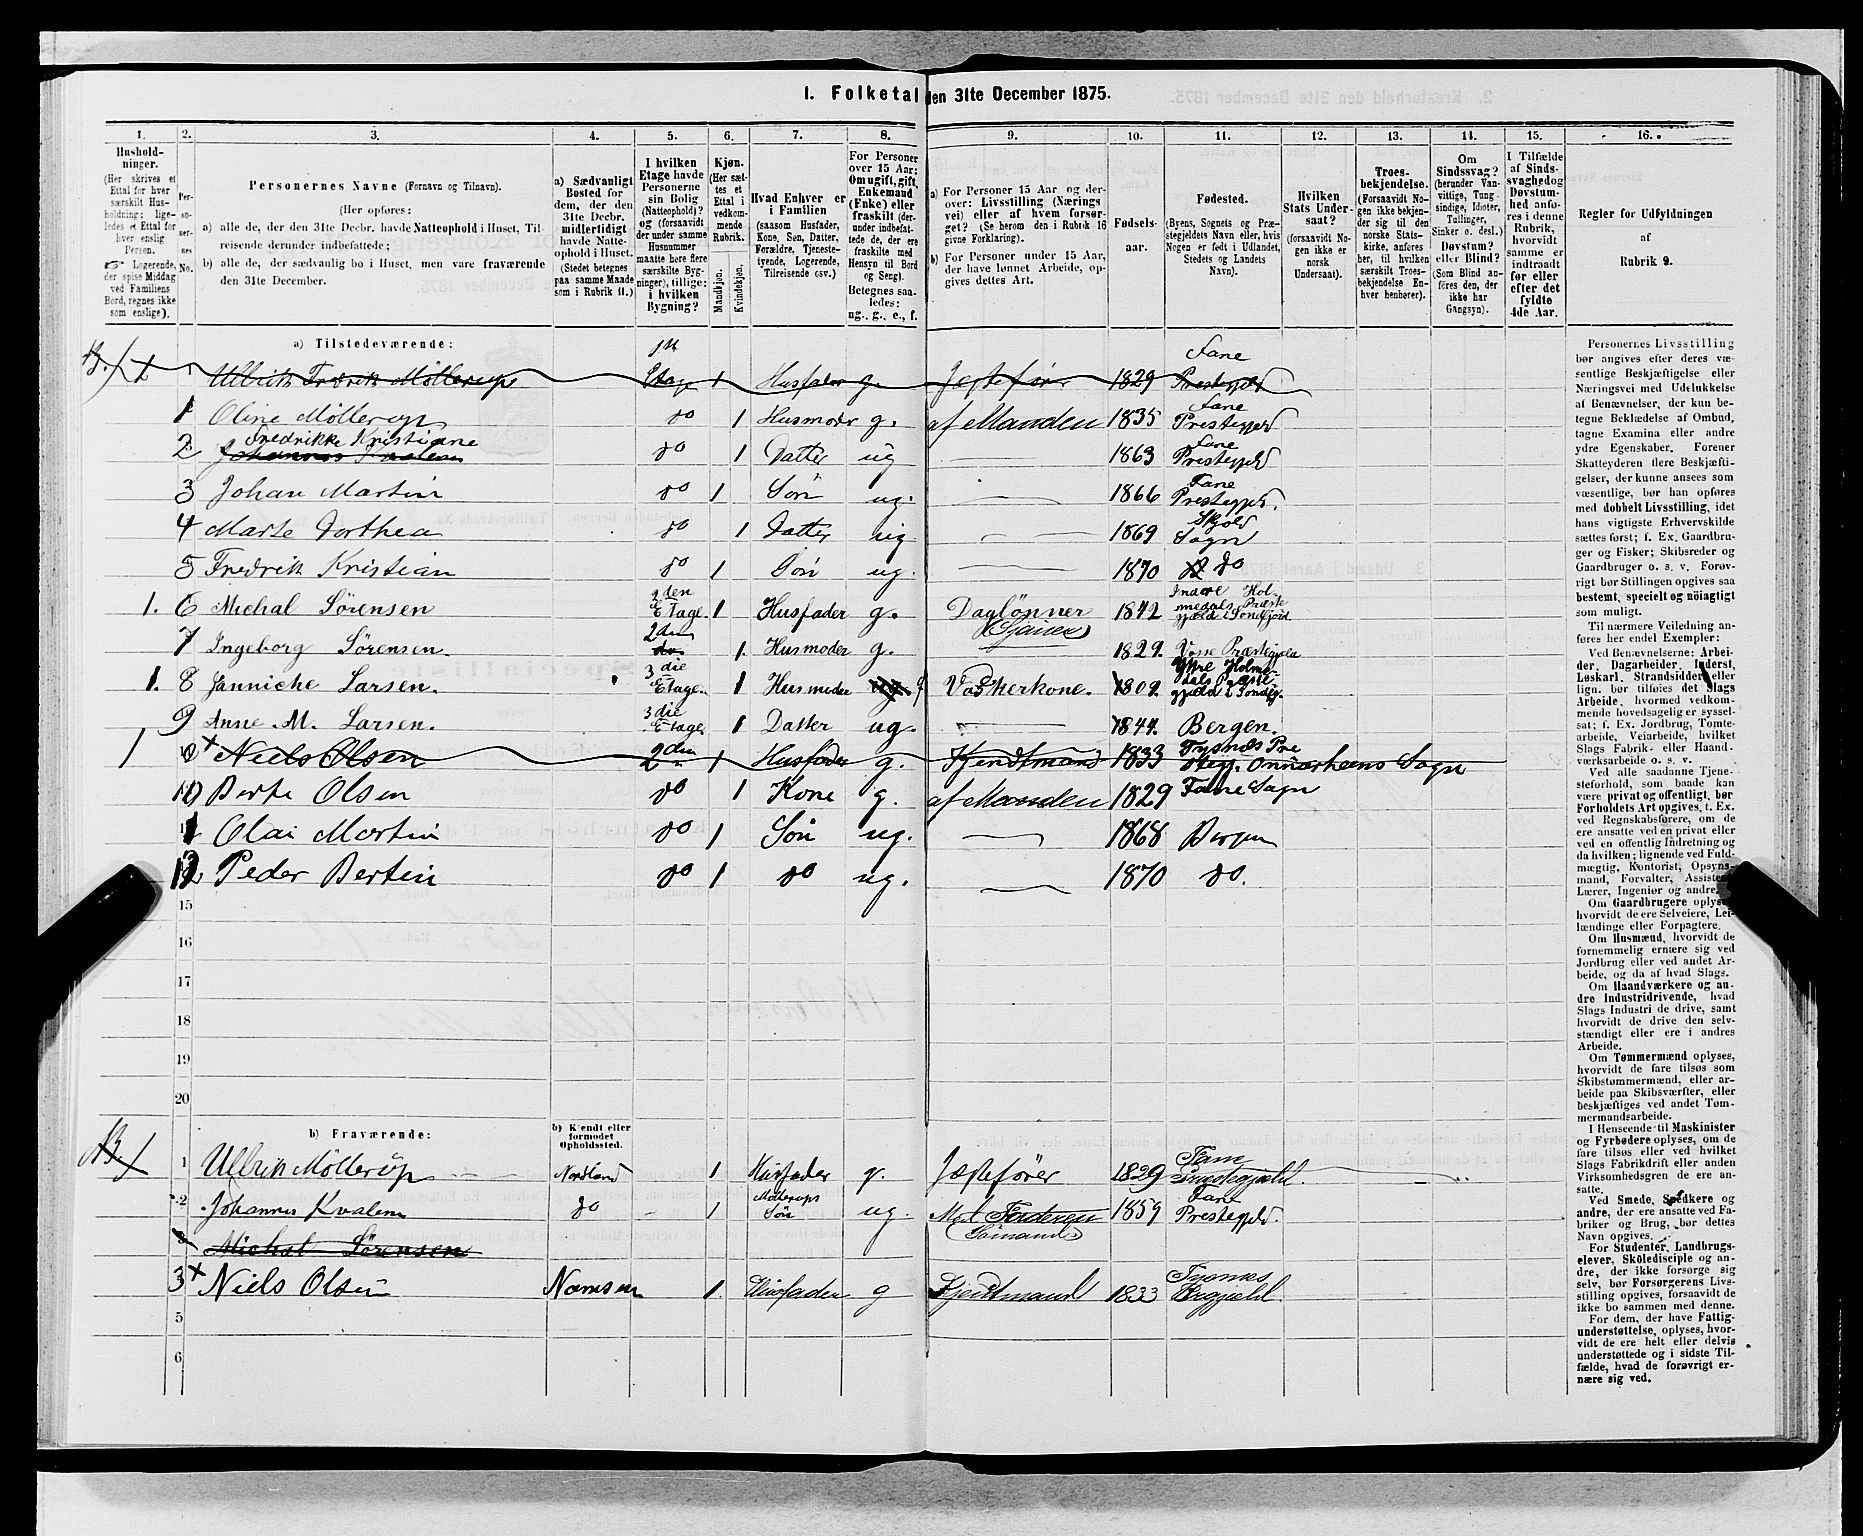 1. Folketal den 31te December 1875.
1. 2. 3. 4. 5. 6. 7. 8. 9. 10. 11. 12. 13. 14. 15. 16.
Hushold-
ninger.
(Her skrives et
Ettal for hver
særskilt Hus-
holdning; lige-
ledes et Ettal for
hver enslig
Person.
Logerende,
der spise Middag
ved Familiens
Bord, regnes ikke
som enslige).
Per-
so-
ner-
nes
No.
Personernes Navne (Fornavn og Tilnavn).
(Her opføres:
a) alle de, der den 31te Decbr. havde Natteophold i Huset, Til-
reisende derunder indbefattede;
b) alle de, der sædvanlig bo i Huset, men vare fraværende
den 31te December.
a) Sædvanligt
Bosted for
dem, der den
31te Decbr.
midlertidigt
havde Natte-
ophold i Huset.
(Stedet betegnes
paa samme Maade
som i Rubrik 11.)
I hvilken
Etage havde
Personerne
sin Bolig
(Natteophold)?
og (forsaavidt
der under samme
Husnummer
maatte høre flere
særskilte Byg-
ninger), tillige:
i hvilken
Bygning?
Kjøn.
(Her sæt-
tes et
Ettal i
vedkom-
mende
Rubrik.
Mandkjøn.
Kvindekjøn.
Hvad Enhver er
i Familien
(saasom Husfader,
Kone, Søn, Datter,
Forældre, Tjeneste-
tyende, Logerende,
Tilreisende osv.)
For Personer
over 15 Aar:
Om ugift, gift,
Enkemand
(Enke) eller
fraskilt (der-
under indbefat-
tede de, der ere
fraskilte med
Hensyn til Bord
og Seng).
Betegnes saa-
ledes:
ug., g., e., f.
a) For Personer 15 Aar og der-
over: Livsstilling (Nærings
vei) eller af hvem forsør-
get? (Se herom den i Rubrik 16
givne Forklaring).
b) For Personer under 15 Aar,
der have lønnet Arbeide, op-
gives dettes Art.
Fødsels-
aar.
Fødested.
(Byens, Sognets og Præ-
stegjeldets Navn eller, hvis
Nogen er født i Udlandet,
Stedets og Landets
Navn).
Hvilken
Stats Under-
saat?
(forsaavidt No-
gen ikke er
norsk
Undersaat).
Troes-
bekjendelse.
(Forsaavidt No-
gen ikke bekjen-
der sig til den
norske Stats-
kirke, anføres
her, til hvilken
særskilt Troes-
bekjendelse En-
hver henhører).
Om
Sindssvag?
(herunder Van-
vittige, Tung-
sindige, Idioter,
Tullinger,
Sinker o. desl.)
Døvstum?
eller Blind?
(Som Blind an-
føres den, der
ikke har
Gangsyn).
I Tilfælde
af Sinds-
svaghed og
Døvstum-
hed anfø-
res i denne
Rubrik,
hvorvidt
samme er
indtraadt
før eller
efter det
fyldte
4de Aar.
Regler for Udfyldningen
af
Rubrik 9.
a) Tilstedeværende:
Ullrik Fredrik Møllerup 1ste Etage 1 Husfader g. Jægtefører 1829 Fane Prestegjeld
1 Oline Møllerup do 1 Husmoder g. af Manden 1835 Fane Prestegjeld
2 Fredrikke Kristiane do 1 Datter ug 1863 Fane Prestegjeld
Johannes Kvalem
3 Johan Martin do 1 Søn ug. 1866 Fane Prestegjeld.
4 Marte Dorthea do 1 Datter ug 1869 Skjold Sogn
5 Fredrik Kristian do 1 Søn ug. 1870 do
1. 6 Michal Sörensen 2den Etage. 1 Husfader g. Daglønner (Sjauer) 1842 Indre Hol-
medals Præste
gjæld i Söndfjord
7 Ingeborg Sörensen. 2den do. 1. Husmoder g. 1829. Voss Præstegjeld
1. 8 Janniche Larsen. 3die Etage. 1 Husmoder Vaskerkone. 1809. Ytre Holme-
dals Præste-
gjæld i Söndfj.
9 Anne M. Larsen. 3die Etage 1 Datter ug. 1844. Bergen.
1 + Niels Olsen 2den 1 Husfader g. Fjendtmand 1833 Tysnæs Pre
stegj. Onnarheims Sogn
Berte Olsen do 1 Kone g. af Manden 1829 Fane Sogn
Olai Martin do 1 Søn ug. 1868 Bergen
Peder Bertin do 1 do ug. 1870 do.
15
16
17
18
19
20
b) Fraværende:
b) Kjendt eller
formodet
Opholdssted.
1 Ullrik Møllerup Nordland 1 Husfader g. Jægtefører 1829 Fane Prestegjeld.
2 Johannes Kvalem do 1 Møllerups Søn ug. Med Faderen (Sømand) 1859 Fane Prestegjeld.
Michal Sörensen
3 + Niels Olsen Namsen 1. Husfader g Fjendtmand 1833 Tysnes
5
6
Personernes Livsstilling
bør angives efter deres væ-
sentlige Beskjæftigelse eller
Næringsvei med Udelukkelse
af Benævnelser, der kun be-
tegne Beklædelse af Ombud,
tagne Examina eller andre
ydre Egenskaber. Forener
Skatteyderen flere Beskjæfti-
gelser, der kunne ansees som
væsentlige, bør han opføres
med dobbelt Livsstilling, idet
hans vigtigste Erhvervskilde
sættes først; f. Ex. Gaardbru-
ger og Fisker; Skibsreder og
Gaardbruger o. s. v. Forøv-
rigt bør Stillingen opgives saa
bestemt, specielt og nöiagtigt
som muligt.
Til nærmere Veiledning an-
føres her endel Exempler:
Ved Benævnelserne: Arbei-
der, Dagarbeider, Inderst,
Løskarl, Strandsidder eller
lign. bør tilføies det Slags
Arbeide, hvormed vedkom-
mende hovedsagelig er syssel-
sat; f. Ex. Jordbrug, Tomte-
arbeide, Veiarbeide, hvilket
Slags Fabrik- eller Haand-
værksarbeide o. s. v.
Ved alle saadanne Tjene-
steforhold, som baade kan
være privat og offentligt, bør
Forholdets Art opgives, t. Ex.
ved Regnskabsførere, om de
ere ansatte ved en privat eller
ved en offentlig Indretning og
da hvilken; lignende ved Fuld-
mægtig, Kontorist, Opsyns-
mand, Forvalter, Assistent,
Lærer, Ingeniør og andre.
Om Gaardbrugere oplyses,
hvorvidt de ere Selveiere, Lei-
lændinge eller Forpagtere.
Om Husmænd, hvorvidt de
fornemmelig ernære sig ved
Jordbrug eller ved andet Ar-
beide, og da af hvad Slags.
Om Haandværkere og an-
dre Industridrivende, hvad
Slags Industri de drive, samt
hvorvidt de drive den selv-
stændigt eller ere i andres
Arbeide.
Om Tømmermænd oplyses,
hvorvidt de fare tilsøs som
Skibstømmermænd, eller ar-
beide paa Skibsværfter, eller
beskjæftiges ved andet Tøm-
mermandsarbeide.
I Henseende til Maskinister
og Fyrbødere oplyses, om de
fare tilsøs eller ved hvilket
Slags Fabrikdrift eller anden
Virksomhedsgren de ere an-
satte.
Ved Smede, Snedkere og
andre, der ere ansatte ved Fa-
briker og Brug, bør dettes
Navn opgives.
For Studenter, Landbrugs-
elever, Skoledisciple og an-
dre, der ikke forsørge sig
selv, bør Forsørgerens Livs-
stilling opgives, forsaavidt de
ikke bo sammen med denne.
For dem, der have Fattig-
understøttelse, oplyses, hvor-
vidt de ere helt eller delvis
understøttede og i sidste Til-
fælde, hvad de forøvrigt er-
nære sig ved.